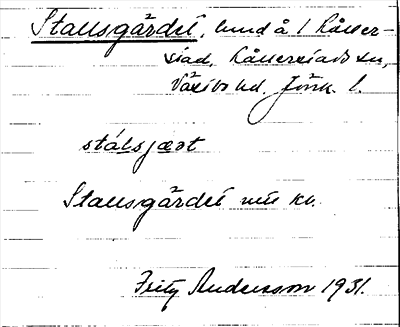 Stallsgärdet, lund å 1 Råller-
stad, Källerstads sn,
Västbo hd, Jönk. l.
stálsjæɾt
Stallsgärdet nut. kv.
Fritz Andersson 1931.